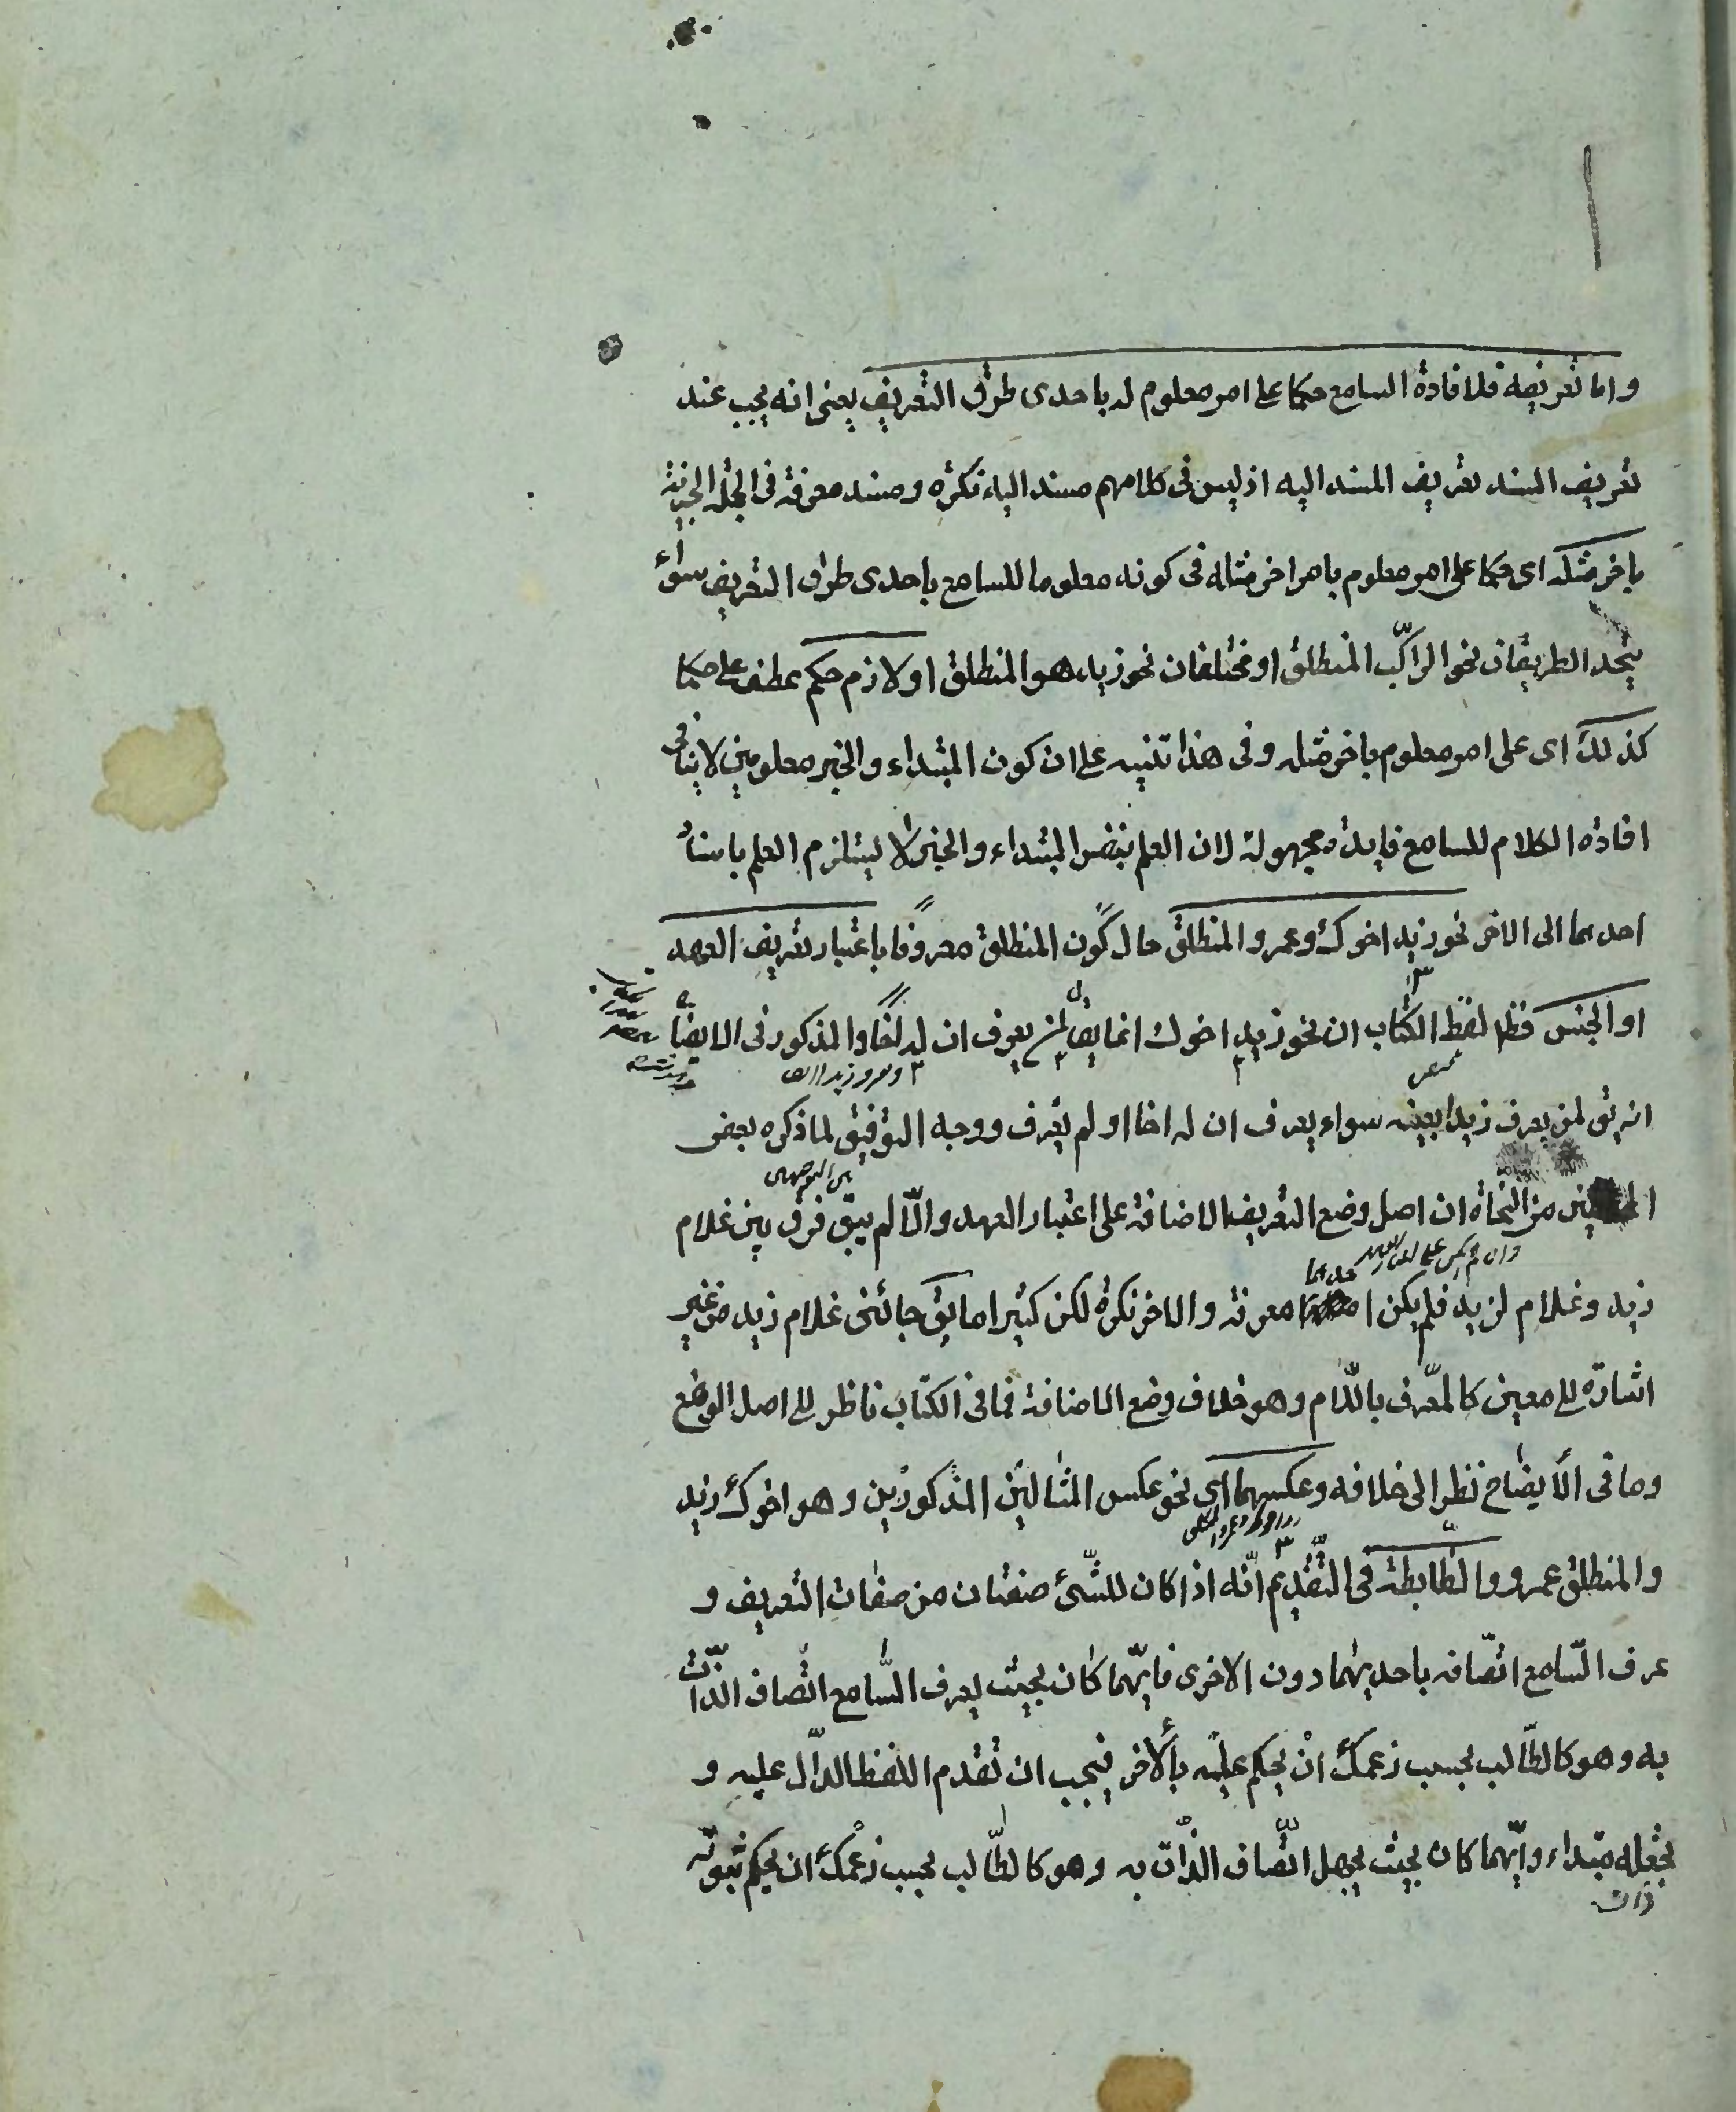 واما تعريفه فلافادة السامع حكما على امر معلوم له باحدى طرق التعريف يعنى انه يجب عند
تعريف المسند تعريف المسند اليه اذ ليس فى كلامهم مسند اليه نكرة ومسند معرفة فى الجملة الخبرية
باخر مثله اى حكما على امر معلوم بامر اخر مثله فى كونه معلوما للسامع باحدى طرق التعريف سواء
يتحد الطريقان نحو الراكب المنطلق او مختلفان نحو زيد هو المنطلق او لازم حكم عطف على حكما
كذلك اى على امر معلوم باخر مثله وفى هذا تنبيه على ان كون المبتداء والخبر معلومين لا ينافى
افادة الكلام للسامع فايدة مجهولة لان العلم بنفس المبتداء والخبر لا يستلزم العلم باسناد
احدهما الى الاخر نحو زيد اخوك وعمرو المنطلق حال كون المنطلق معروفا باعتبار تعريف العهد
او الجنس فظ لفظ الكتاب ان نحو زيد اخوك انما يق لمن يعرف ان له اخا والمذكور فى الايضا
٣ وعمرو زيدا
انه يق لمن يعرف زيدا بعينه سواء يعرف ان له اخا او لم يعرف ووجه التوفيق لما ذكره بعض
من النحاة ان اصل وضع التعريف الاضافة على اعتبار العهد والّا لم يبق فرق بين غلام
وان لم يكن على
حدهما
زيد وغلام لزيد فلم يكن ا معرفة والاخر نكرة لكن كثيرا ما يق جائنى غلام زيد من غير
اشارة الى معين كالمعرف باللام وهو خلاف وضع الاضافة فما فى الكتاب ناظر الى اصل الوضع
وما فى الايضاح نظر الى خلافه وعكسهما اى نحو عكس المثالين المذكورين وهو اخوك زيد
والمنطلق عمرو والضابطة فى التقديم انّه اذا كان للشئ صفتان من صفات التعريف و
عرف السّامع اتّصافه باحديهما دون الاخرى فايّهما كان بحيث يعرف السّامع اتّصاف الذّات
به وهو كالطّالب بحسب زعمك ان يحكم عليه بالاخر فيجب ان تقدم اللفظ الدّال عليه و
تجعله مبتداء وايّهما كان بحيث يجهل اتّصاف الذّات به وهو كالطّالب بحسب زعمك ان يحكم بثبوته
ذات